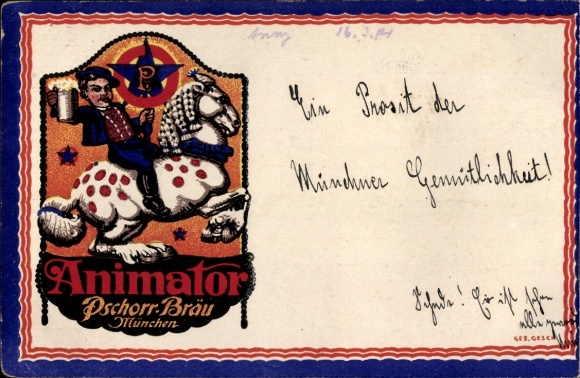 16. 3. 14
P
Ein Prosit der
Münchner Gemütlichkeit!
Animator
Pschorr-Bräu
München
Schade! Es ist schon
alle
GES. GESCH